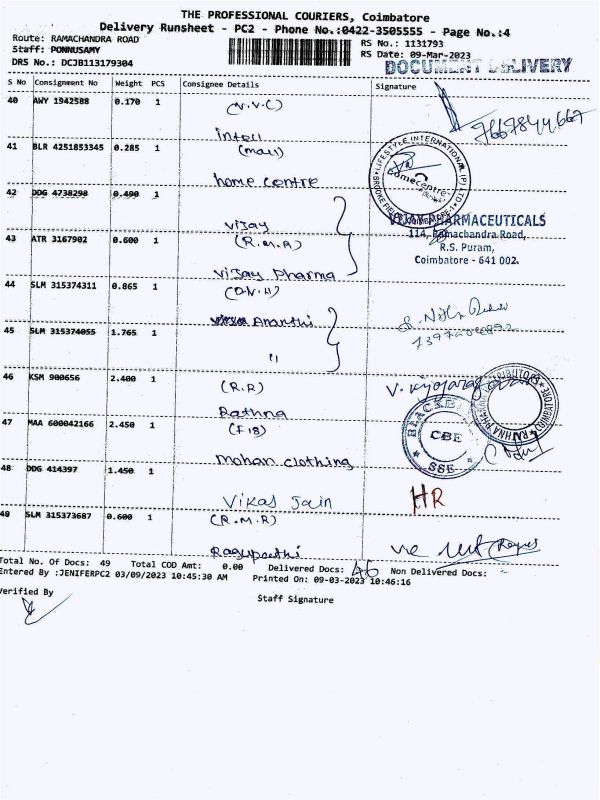 THE PROFESSIONAL COURIERS, Coimbatore
Delivery Runsheet - PC2 - Phone No.:0422-3505555 - Page No.:4
Route: RAMACHANDRA ROAD
RS No.: 1131793
Staff: PONNUSAMY
RS Date: 09-Mar-2023
DRS No.: DCJB113179304
DOCUMENT DELIVERY
S No Consignment No Weight PCS Consignee Details Signature
40 AWY 1942588 0.170 1 (V.V.C)
7667844667
Inteli
41 BLR 4251853345 0.285 1 (mall)
LIFESTYLE INTERNATIONAL (P) LTD
homecentre
home centre
42 DDG 4738298 0.490 1
Vijay
VIJAY PHARMACEUTICALS
43 ATR 3167902 0.600 1 (R.M.R)
114, Ramachandra Road,
R.S. Puram,
Coimbatore - 641 002.
Vijay Pharma
44 SLM 315374311 0.865 1 (D.V.H)
Ananthi
45 SLM 315374055 1.765 1
"
46 KSM 900656 2.400 1 (R.R)
Rathna
47 MAA 600042166 2.450 1 (F18)
CBE
SSE
mohan clothing
48 DDG 414397 1.450 1
Vikas Jain
HR
49 SLM 315373687 0.600 1 (R.M.R)
Ragupathi
Total No. Of Docs: 49 Total COD Amt: 0.00 Delivered Docs: 46 Non Delivered Docs:
Entered By :JENIFERPC2 03/09/2023 10:45:30 AM Printed On: 09-03-2023 10:46:16
Verified By
Staff Signature